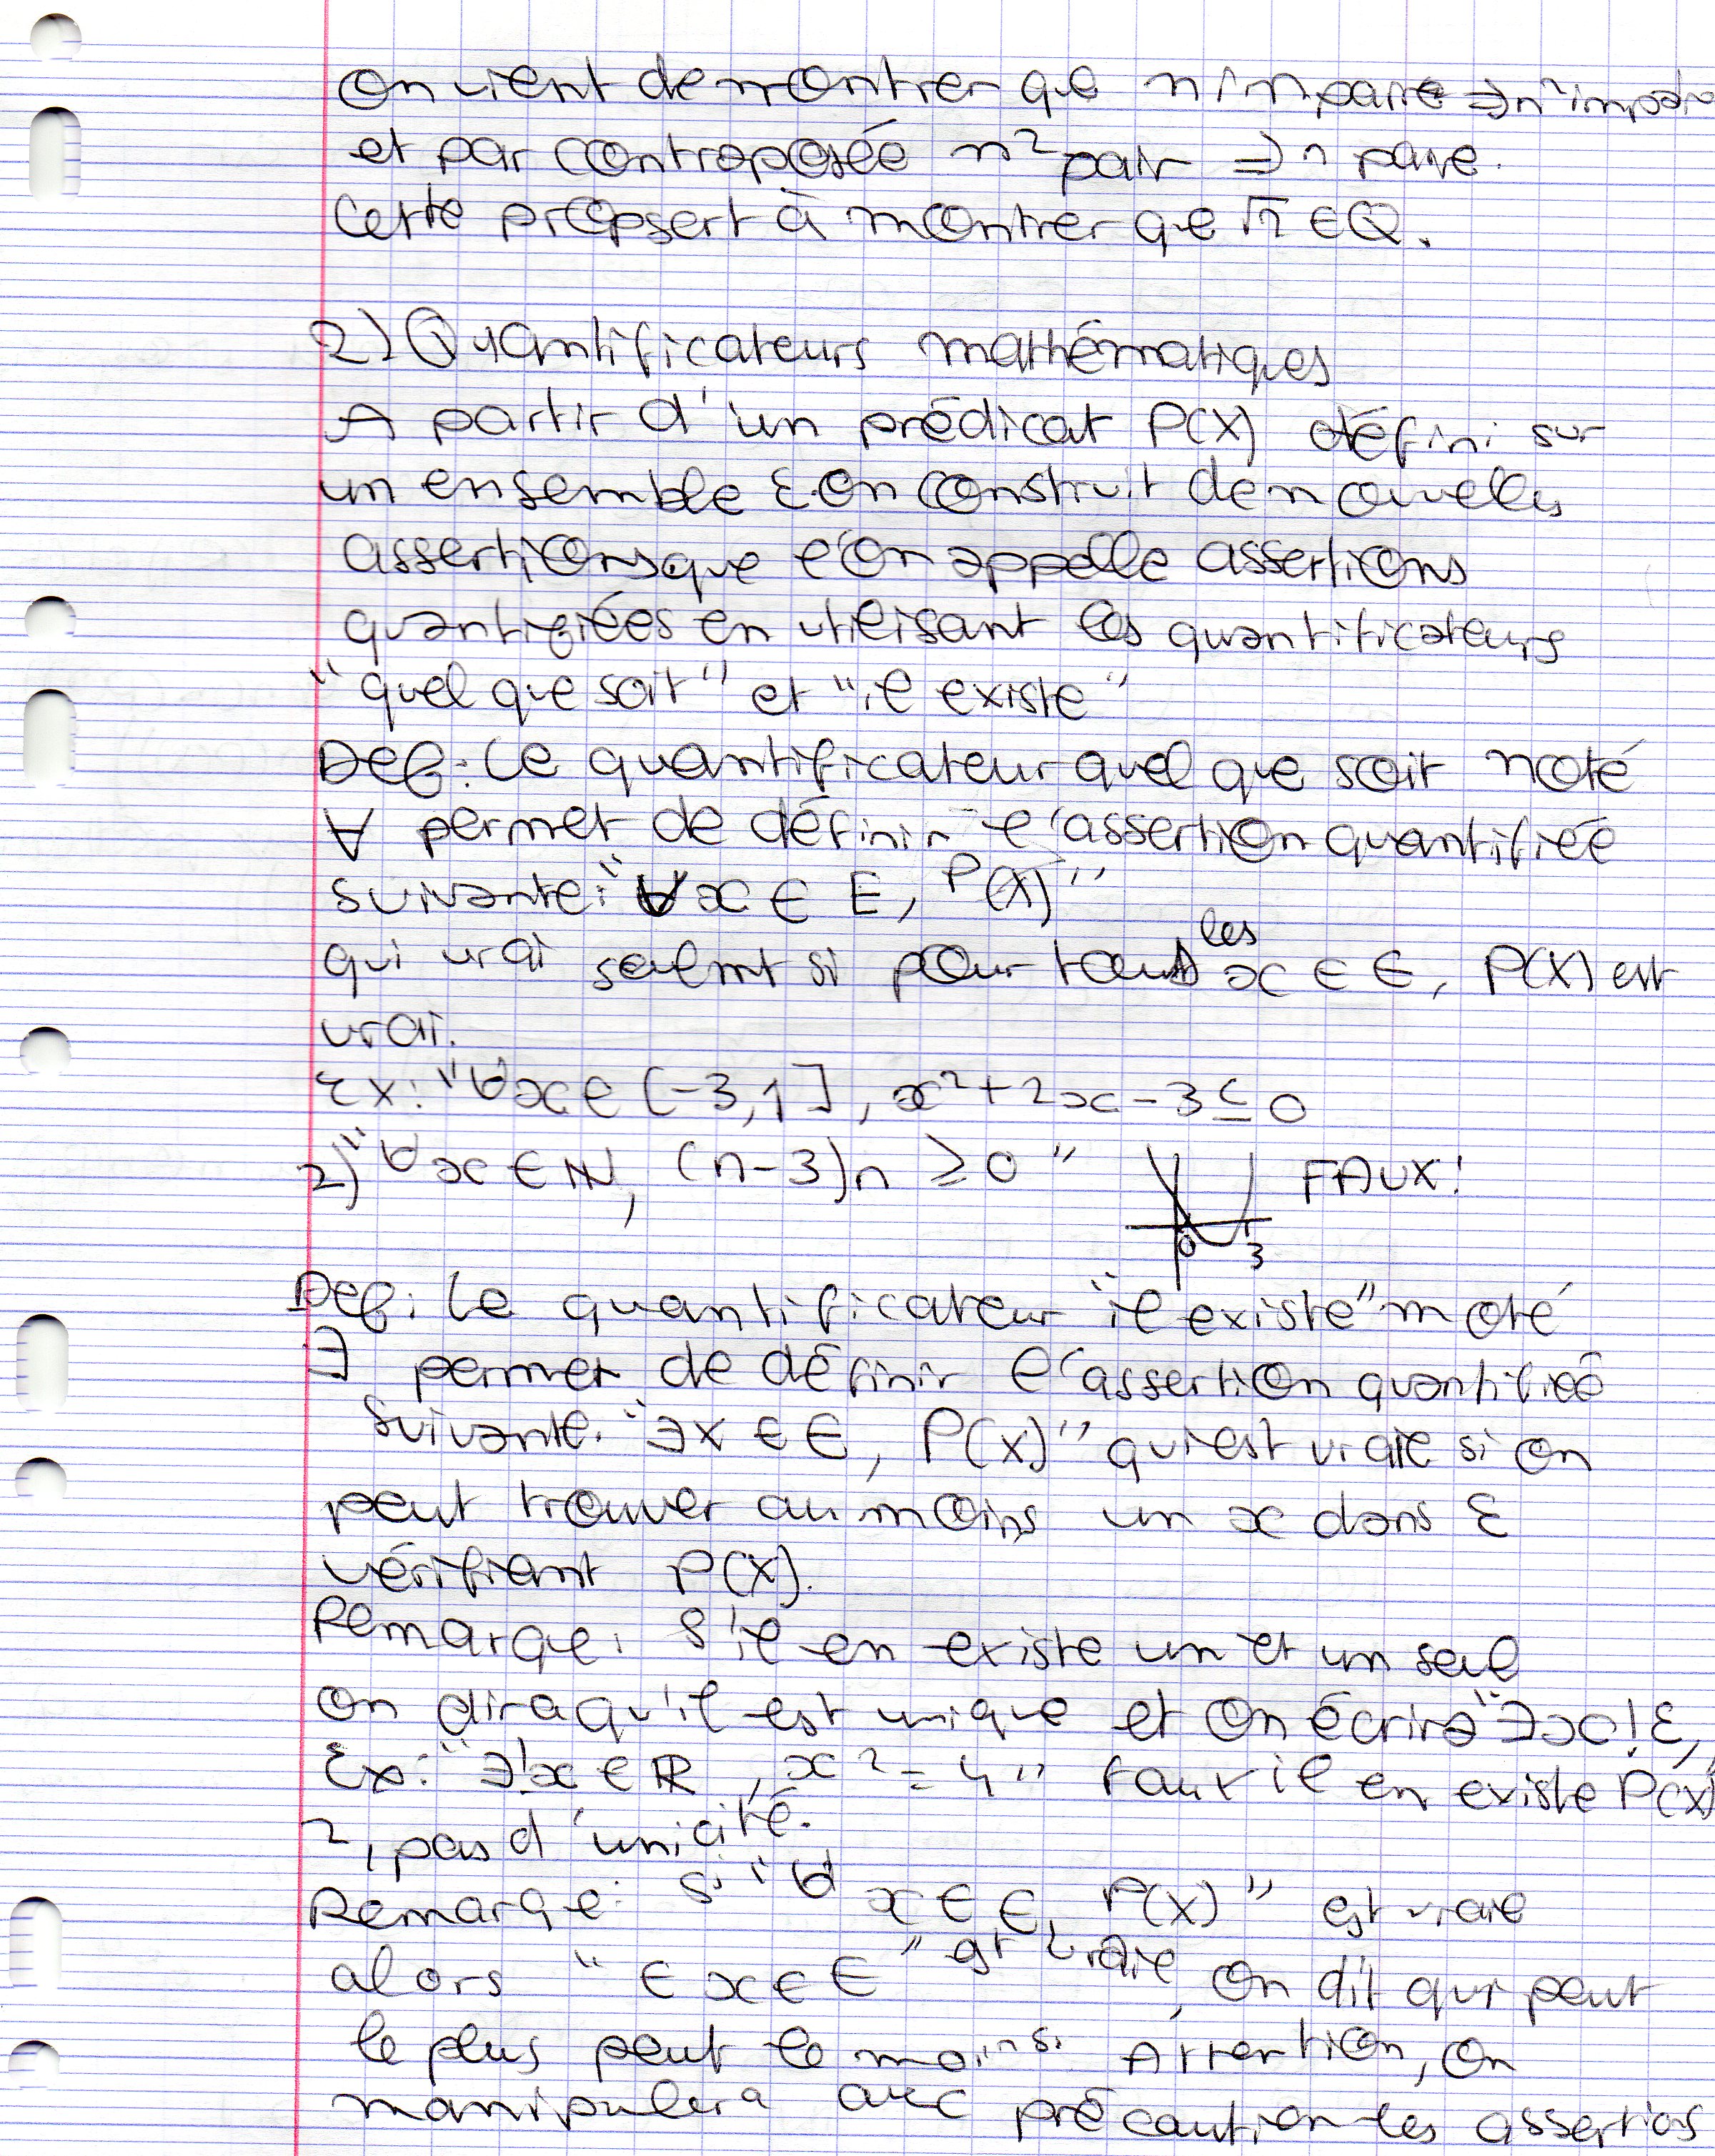 On vient de montrer que n impaire => n² impair
et par contraposée n² pair => n paire.
Cette prop sert à montrer que √2 ∈ Q.
2) Quantificateurs mathématiques
A partir d'un prédicat P(X) défini sur
un ensemble E on construit de nouvelles
assertions que l'on appelle assertions
quantifiées en utilisant les quantificateurs
"quel que soit" et "il existe"
Def: Le quantificateur quel que soit noté
∀ permet de définir l'assertion quantifiée
suivante: "∀x ∈ E, P(X)"
qui vrai seulmt si pour tous les x ∈ E, P(X) est
vrai.
Ex: "∀x ∈ [-3,1], x²+2x-3 ≤ 0
2) "∀x ∈ N, (n-3)n ≥ 0" FAUX!
0 3
Def: Le quantificateur "il existe" noté
∃ permet de définir l'assertion quantifiée
suivante. "∃x ∈ E, P(X)" qui est vraie si on
peut trouver au moins un x dans E
vérifient P(X).
Remarque: S'il en existe un et un seul
on dira qu'il est unique et on écrira "∃x! E,
P(X)
Ex: "∃!x ∈ R, x² = 4" faux il en existe
2, pas d'unicité.
Remarqe: Si "∀ x ∈ E, P(X)" est vraie
alors "∈ x ∈ E" est vraie, On dit qui peut
le plus peut le moins. Attention, on
manipulera avec précaution les assertios